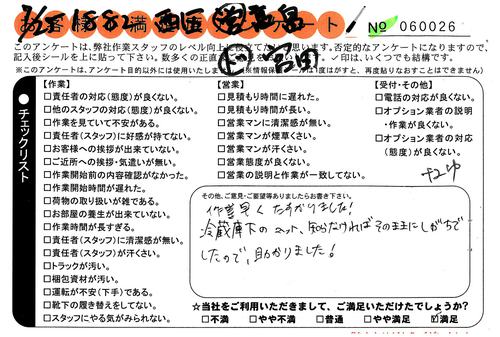 お客様満足度アンケート
No 060026
このアンケートは、弊社作業スタッフのレベル向上に役立てたいと思います。否定的なアンケートになりますので、
記入後シールを上に貼って下さい。
✓印は、いくつでも結構です。
●チェックリスト
【作業】
□責任者の対応(態度)が良くない。
□他のスタッフの対応(態度)が良くない。
□作業を見ていて不安がある。
□責任者(スタッフ)に好感が持てない。
□お客様への挨拶が出来ていない。
□ご近所への挨拶・気遣いが無い。
□作業開始前の内容確認がなかった。
□作業開始時間が遅れた。
□荷物の取り扱いが雑である。
□お部屋の養生が出来ていない。
□作業時間が長すぎる。
□責任者(スタッフ)に清潔感が無い。
□責任者(スタッフ)が汗くさい。
□トラックが汚い。
□梱包資材が汚い。
□運転が不安(下手)である。
□靴下の履き替えをしてない。
□スタッフにやる気がみられない。
【営業】
□見積もり時間に遅れた。
□見積もり時間が長い。
□営業マンに清潔感が無い。
□営業マンが煙草くさい。
□営業マンが汗くさい。
□営業態度が良くない。
□営業の説明と作業が一致してない。
【受付・その他】
□電話の対応が良くない。
□オプション業者の説明
・作業が良くない。
□オプション業者の対応
(態度)が良くない。
その他、ご意見・ご要望等ありましたらお書き下さい。
作業早くたすかりました!
冷蔵庫下のマット、知らなければそのままにしがちで
したので、助かりました!
☆当社をご利用いただきまして、ご満足いただけたでしょうか?
□不満 □やや不満 □普通 □やや満足 ☑満足